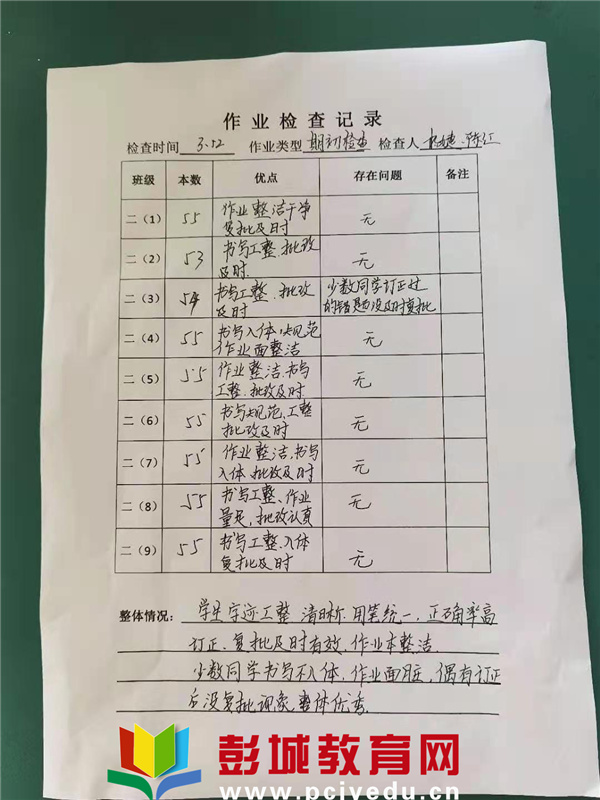 作业检查记录
检查时间 3.12 作业类型 期初检查 检查人
班级 本数 优点 存在问题 备注
二(1) 55 作业整洁干净 无
复批及时
二(2) 53 书写工整、批改 无
及时.
二(3) 54 书写工整、批改 少数同学订正过
及时 的错题没及时复批
二(4) 55 书写入体,规范 无
作业面整洁
二(5) 55 作业整洁.书写 无
工整.批改及时.
二(6) 55 书写规范、工整 无
批改及时
二(7) 55 作业整洁,书写 无
入体,批改及时
二(8) 55 书写工整、作业 无
量足,批改认真
二(9) 55 书写工整、入体 无
复批及时
整体情况: 学生字迹工整.清晰.用笔统一,正确率高
订正、复批及时有效,作业本整洁.
少数同学书写不入体,作业面脏,偶有订正
后没复批现象.整体优秀.
彭城教育网
www.pcivedu.cn